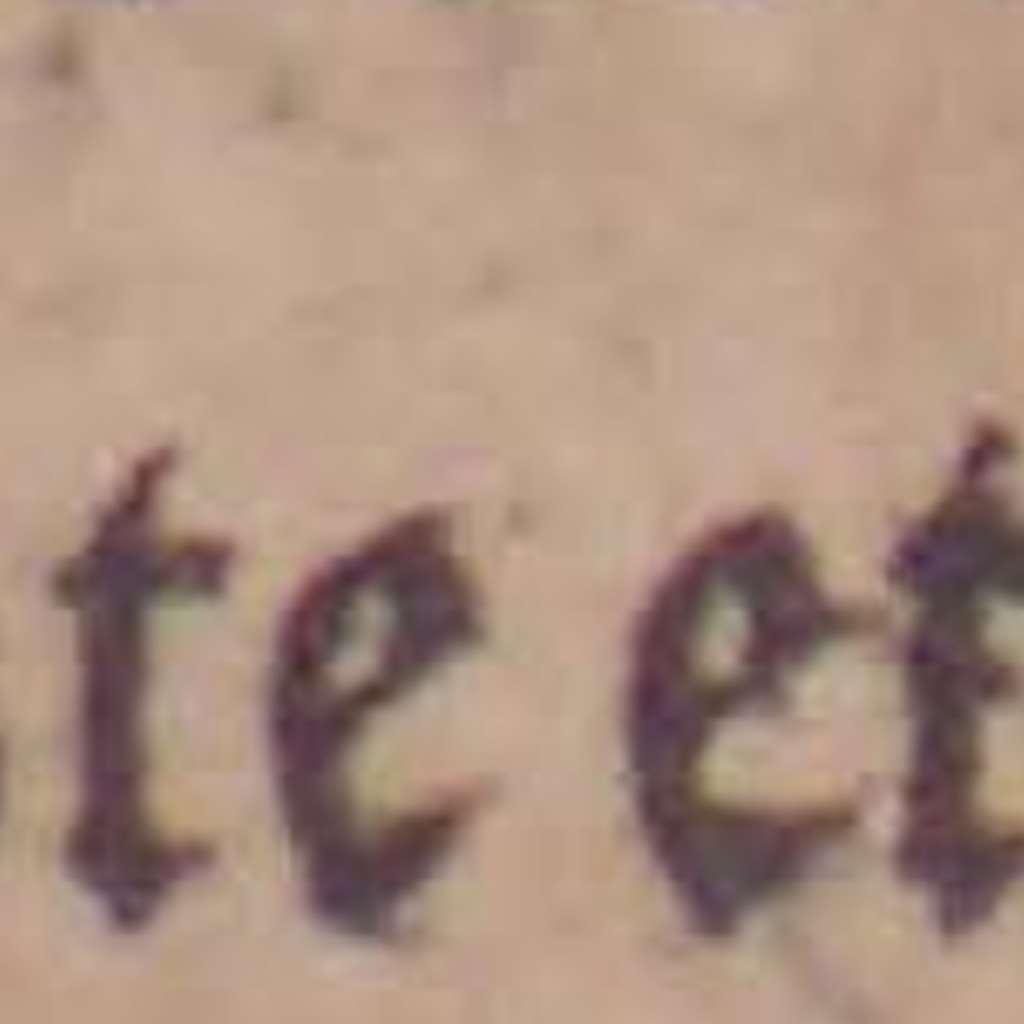 te et